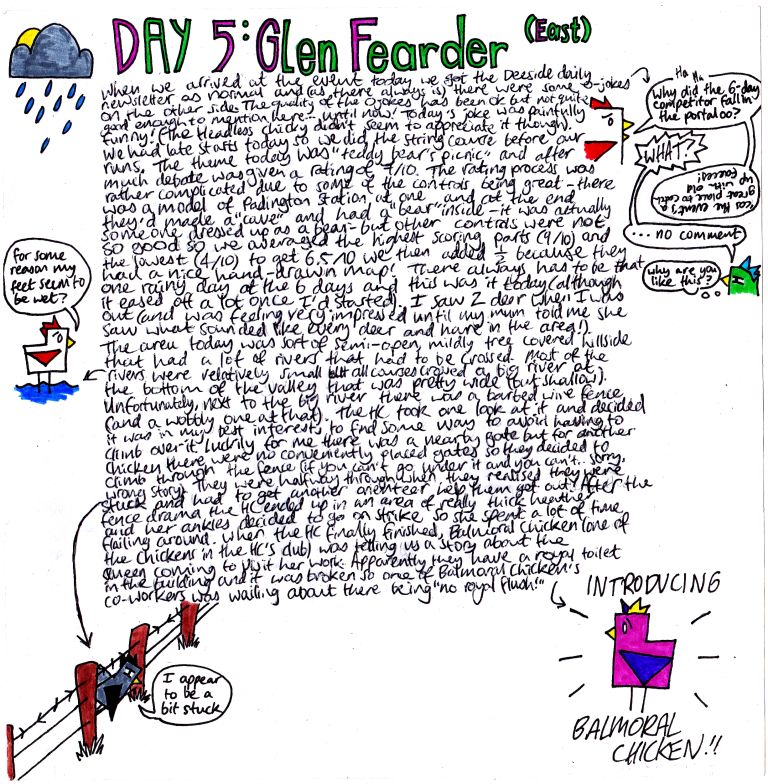 DAY 5: Glen Fearder (East)
When we arrived at the event today we got the Deeside daily
newsletter as normal and (as there always is) there were some o-jokes
on the other side. The quality of the ojokes has been ok but not quite
good enough to mention here... until now! Today's joke was painfully
funny! (The Headless chicky didn't seem to appreciate it though).
We had late starts today so we did the string course before our
runs. The theme today was "teddy bear's picnic" and after
much debate was given a rating of 7/10. The rating process was
rather complicated due to some of the controls being great - there
was a model of Padington station at one and at the end
they'd made a "cave" and had a "bear" inside - it was actually
someone dressed up as a bear - but other controls were not
so good so we averaged the highest scoring parts (9/10) and
the lowest (4/10) to get 6.5/10 we then added ½ because they
had a nice hand-drawn map! There always has to be that
one rainy day at the 6 days and this was it today (although
it eased off a lot once I'd started). I saw 2 deer when I was
out (and was feeling very impressed until my mum told me she
saw what sounded like every deer and hare in the area!).
The area today was sort of semi-open, mildly tree covered hillside
that had a lot of rivers that had to be crossed. Most of the
rivers were relatively small but all courses crossed a big river at
the bottom of the valley that was pretty wide (but shallow).
Unfortunately, next to the big river there was a barbed wire fence
(and a wobbly one at that). The HC took one look at it and decided
it was in my best interests to find some way to avoid having to
climb over it. Luckily for me there was a nearby gate but for another
chicken there were no conveniently placed gates so they decided to
climb through the fence (if you can't go under it and you can't.. sorry,
wrong story). They were halfway through when they realised they were
stuck and had to get another orienteer help them get out! After the
fence drama the HC ended up in an area of really thick heather
and her ankles decided to go on strike so she spent a lot of time
flailing around. When the HC finally finished, Balmoral Chicken (one of
the chickens in the HC's club) was telling us a story about the
Queen coming to visit her work. Apparently they have a royal toilet
in the building and it was broken so one of Balmoral Chicken's
co-workers was wailing about there being "no royal flush!"
Ha Ha
Why did the 6-day
competitor fall in
the portaloo?
WHAT?
'cos the event's a
great place to catch
up with old
faeces!
... no comment
why are you
like this?
for some
reason my
feet seem to
be wet?
I appear
to be a
bit stuck
INTRODUCING
BALMORAL
CHICKEN!!